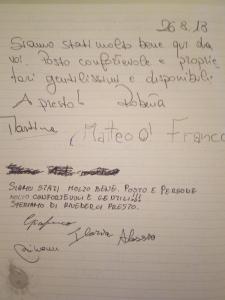 26.8.13
Siamo stati molto bene qui da
voi. Posto confortevole e proprie
tari gentilissimi e disponibili
A presto! Roberta
Martina
Matteo Franco
SIAMO STATI MOLTO BENE. POSTO E PERSONE
MOLTO CONFORTEVOLI E GENTILI!!!
SPERIAMO DI RIVEDERCI PRESTO.
Ilaria Alessio